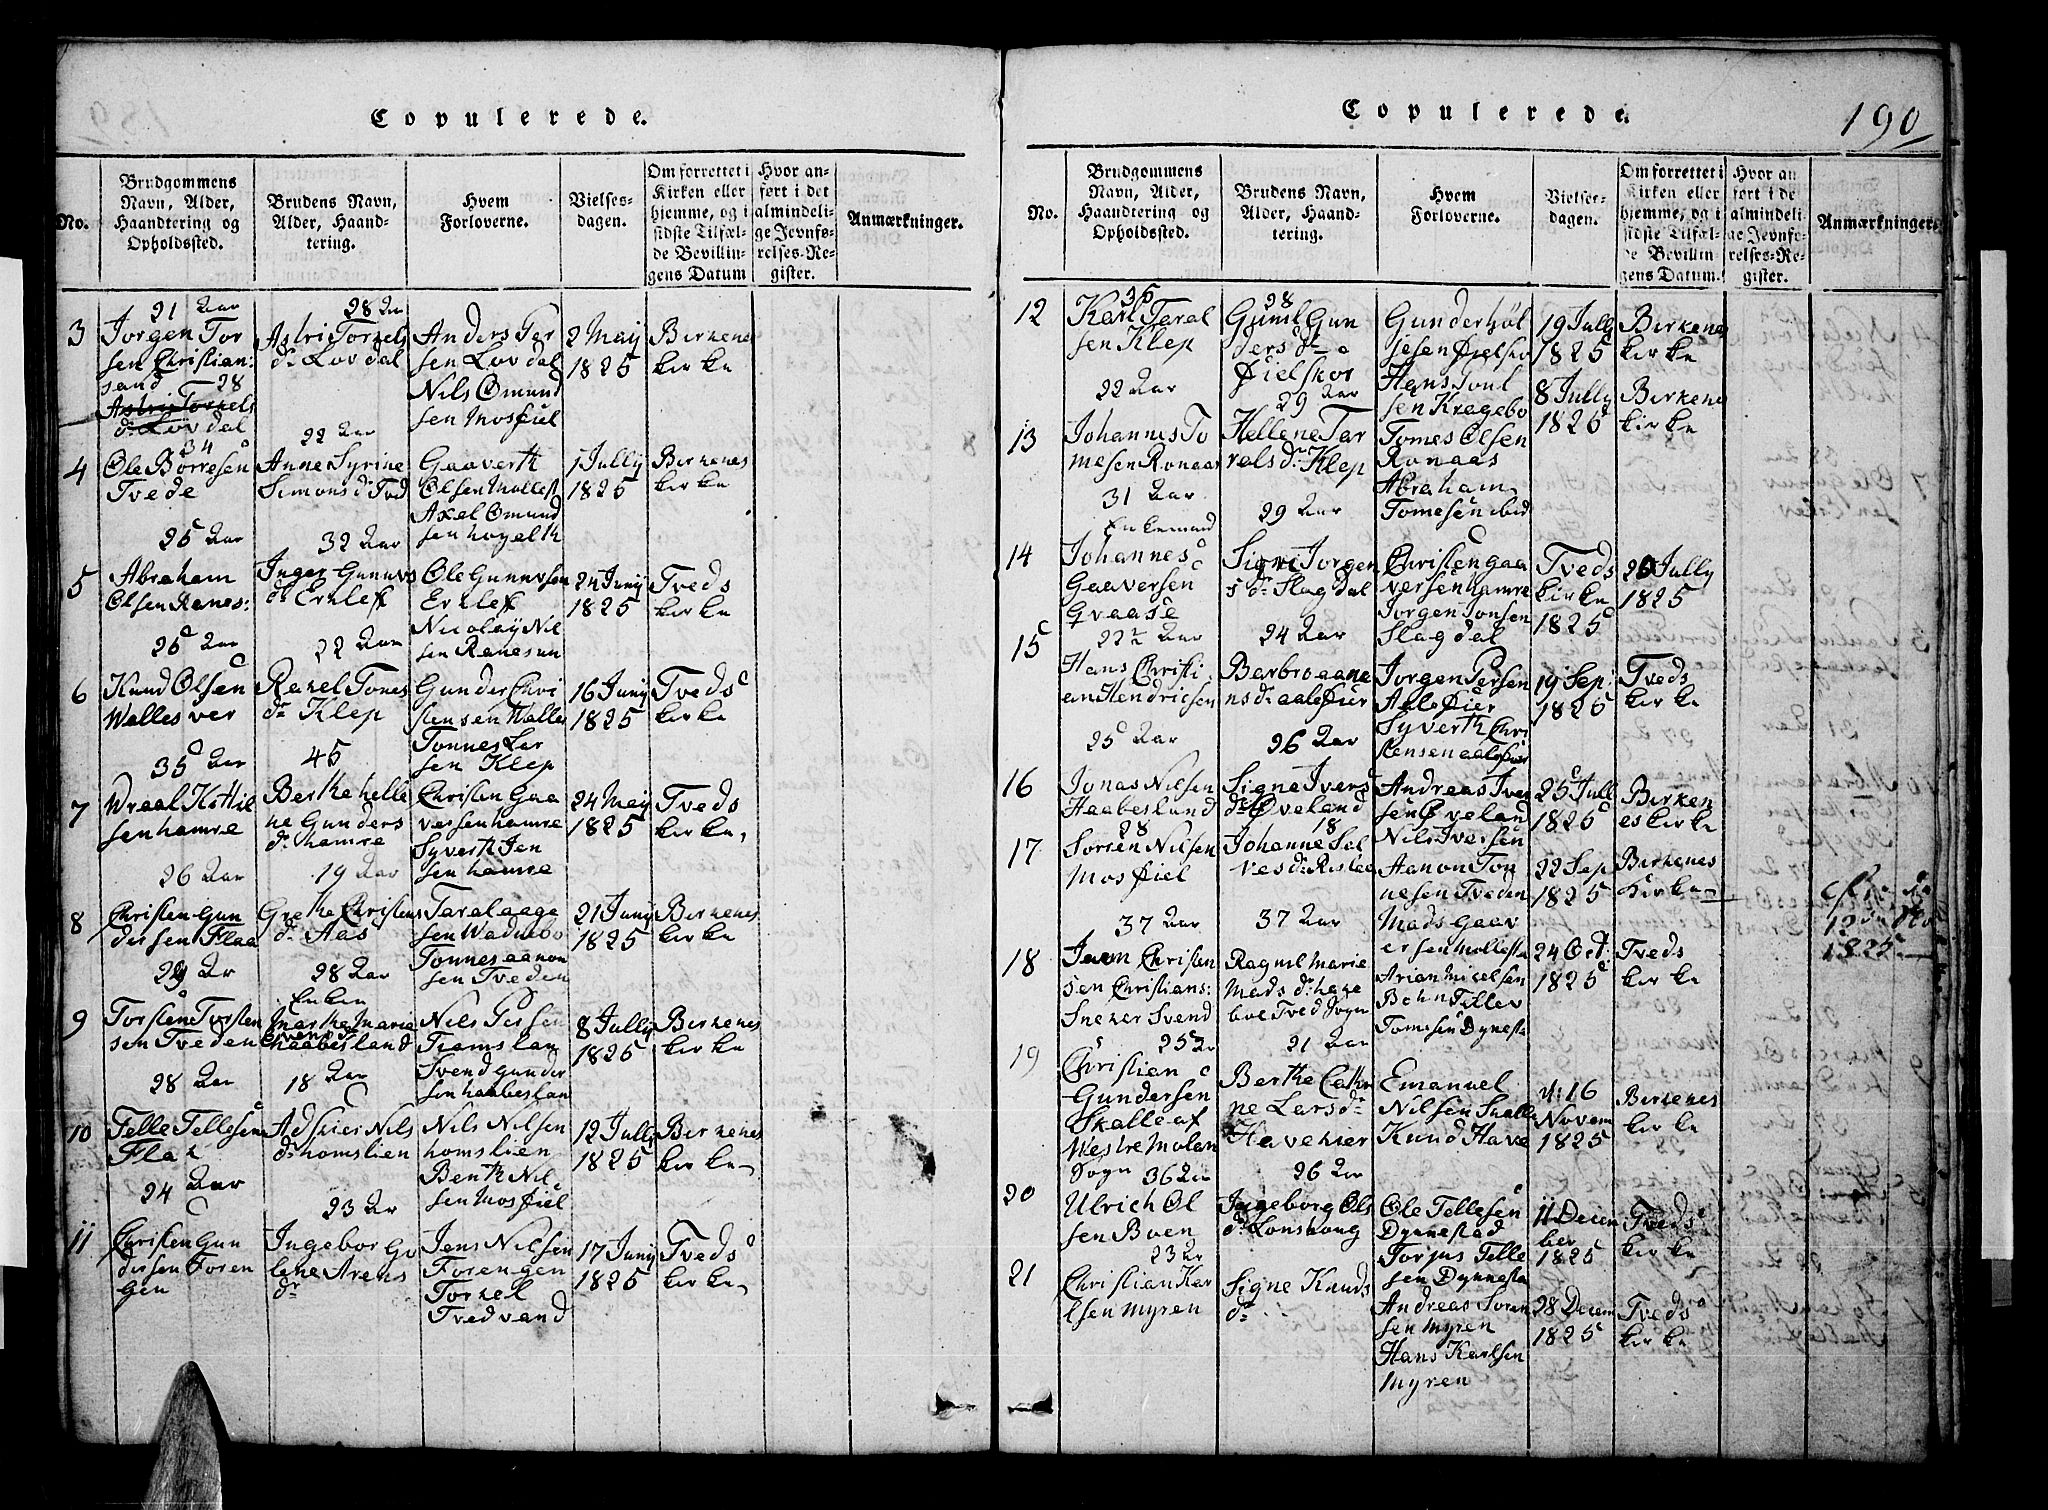 Copulerede.
No.
Brudgommens
Navn, Alder,
Haandtering og
Opholdssted.
Brudens Navn,
Alder, Haand-
tering.
Hvem
Forloverne.
Vielses-
dagen.
Om forrettet i
Kirken eller
hjemme, og i
sidste Tilfæl-
de Bevillin-
gens Datum
Hvor an-
ført i det
almindeli-
ge Jevnfø-
relses-Re-
gister.
Anmærkninger.
3
21 Aar
Jorgen Tor
sen Christian:
sand 28
Astri Torkels
dr Lovdal
28 Aar
Astri Torkels
dr Lovdal
Anders Ter
sen Lovdal
Nils Omund
sen Mosfiel
2 Maij
1825
Birkenes
kirke
4
34
Ole Börresen
Tvede
22 Aar
Anne Syrine
Simonsdr Tved
Gaaverth
Olsen Mollest
Axel Omund
sen
1 Jully
1825
Birkenes
kirke
5
25 Aar
Abraham
Olsen Ranes:
32 Aar
Inger Gunuvs
dr Erkleff
Ole Gunuvsen
Erkleff
Nicolaÿ Nil
sen Ranesun
24 Junij
1825
Tveds
kirke
6
25 Aar
Knud Olsen
Wallesver
22 Aar
Rakel Tones
dr Klep
Gunder Chri
stensen Walles
Tonnes Lar
sen Klep
16 Junij
1825
Tveds
kirke
7
35 Aar
Wraal Kittil
sen hamre
45
Berthe helle
ne Gunders
dr hamre
Christen Gaa
versen hamre
Syverth Jen
sen hamre
24 Maij
1825
Tveds
kirke
8
26 Aar
Christen Gun
dersen Flaa
19 Aar
Grethe Christens
dr Aas
Taral aage
sen Wadnebo
Tonnes aanon
sen Tveden
21 Junij
1825
Birkenes
kirke
9
29 Ar
Torsten Torsten
sen Tveden
28 Aar
Enken
Marthe Marie
haabesland
Nils Persen
Tramslan
Svend gunder
sen haabeslan
8 Jully
1825
Birkenes
kirke
10
28 Aar
Telle Tellesen
Flaa
18 Aar
Adsier Nils
dr homslien
Nils Nilsen
homslien
Benth Nil
sen Mosfiel
12 Jully
1825
Birkenes
kirke
11
24 Aar
Christen Gun
dersen Foren
gen
23 Ar
Ingebor Go
lene Arens
dr
Jens Nilsen
Forengen
Torkel
Tvedvand
17 Junij
1825
Tveds
kirke
Copulerede.
190
No.
Brudgommens
Navn, Alder,
Haandtering og
Opholdssted.
Brudens Navn,
Alder, Haand-
tering.
Hvem
Forloverne.
Vielses-
dagen.
Om forrettet i
Kirken eller
hjemme, og i
sidste Tilfæl-
de Bevillin-
gens Datum.
Hvor an
ført i de
almindeli
ge Jevnfø-
relses-Re-
gister.
Anmærkninger.
12
35
Karl Taral
sen Klep
28
Gunil Gun
dersdr
Fielskor
Gunder höl
jesen Fielskor
Hans Toul
sen Kragebo
19 Jully
1825
Birkenes
kirke
13
22 Aar
Johannes To
mesen Ronaas
29 Aar
Hellene Tar
relsdr Klep
Tomes Olsen
Ronaas
Abraham
Tomesen ibid
8 Jully
1825
Birkenes
kirke
14
31 Aar
Enkemand
Johannes
Gaaversen
Qvaase
29 Aar
Sigri Jorgen
sdr Slagdal
Christen gaa
versen hamre
Jorgen Jonsen
Slagdal
Tveds
kirke
1825
20 Jully
1825
15
22½ Aar
Hans Christi
an Hendricsen
24 Aar
Barbro aane
nsdr aalefier
Jorgen Persen
Aalefier
Syverth Chri
stensen aalefier
19 Sep:
1825
Tveds
kirke
16
25 Aar
Jonas Nilsen
Haabesland
26 Aar
Signe Ivers
dr Øveland
Andreas Iver
sen Øveland
Nils Iversen
25 Jull
1825
Birken
es kirke
17
28
Sörren Nilsen
Mosfiel
18
Johanne Sel
vesdr Rislaa
Aanon Ton
nesen Tveden
Mads Gaav
ersen Mollesta
22 Sep
1825
Birkenes
Kirke
12 Nov
1825
18
37 Aar
Christen
sen Christians:
Sneker Svend
37 Aar
Ragnil Marie
Madsdr have
boe Tved Sogn
Arian Micelsen
Bohn Tellev
Tomesen Dynesta
24 Oct:
1825
Tveds
kirke
19
25 Ar
Christien
Gundersen
Skalle af
Westre Molan
Sogn
21 Aar
Berthe Cathr
ne Larsdr
Havehier
Emanuel
Nilsen Snalle
Knud Have
d: 16
Novem
1825
Birkenes
kirke
20
36 Ar
Ulrich Ol
sen Boen
26 Ar
Ingeborg Ols
dr Lonshoug
Ole Tellesen
Dynnestad
Torjus Telle
sen Dynnesta
11 Decem
ber
1825
Tveds
kirke
21
23 Ar
Christian Kar
lsen Myren
Signe Knuds
dr
Andreas Soren
sen Myren
Hans Karlsen
Myren
28 Decem
1825
Tveds
kirke